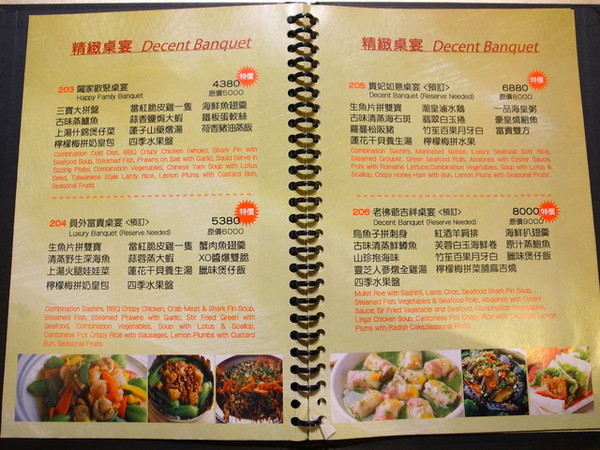 精緻桌宴 Decent Banquet
203 闔家歡聚桌宴 4380 特價
Happy Family Banquet 原價5000
三寶大拼盤 當紅脆皮雞一隻 海鮮魚翅羹
古味蒸鱸魚 蒜香鹽焗大蝦 鐵板蛋軟絲
上湯什錦煲仔菜 蓮子山藥燉湯 荷香豬油蒸飯
檸檬梅拼奶皇包 四季水果盤
Combination Cold Dish, BBQ Crispy Chicken (whole), Shark Fin with
Seafood Soup, Steamed Fish, Prawns on Salt with Garlic, Squid Serve in
Sizzling Plate, Combination Vegetables, Chinese Yam Soup with Lotus
Seed, Taiwanese Style Lardy Rice, Lemon Plums with Custard Bun,
Seasonal Fruits
204 員外富貴桌宴 <預訂> 5380 特價
Luxury Banquet (Reserve Needed) 原價6000
生魚片拼雙寶 當紅脆皮雞一隻 蟹肉魚翅羹
清蒸野生深海魚 蒜蓉蒸大蝦 XO醬爆雙脆
上湯火腿娃娃菜 蓮花干貝養生湯 臘味煲仔飯
檸檬梅拼奶皇包 四季水果盤
Combination Sashimi, BBQ Crispy Chicken, Crab Meat & Shark Fin Soup,
Steamed Fish, Steamed Prawns with Garlic, Stir Fried Green with
Seafood, Combination Vegetables, Soup with Lotus & Scallop,
Cantonese Pot Crispy Rice with Sausages, Lemon Plumbs with Custard
Bun, Seasonal Fruits
精緻桌宴 Decent Banquet
205 貴妃如意桌宴 <預訂> 6880 特價
Decent Banquet (Reserve Needed) 原價8000
生魚片拼雙寶 潮皇滷水鵝 一品海皇粥
古味清蒸海石斑 翡翠白玉捲 豪皇燒鮑魚
蘿蔓松阪豬 竹笙百果月牙白 富貴雙方
蓮花干貝養生湯 檸檬梅拼水果
Combination Sashimi, Marinated Goose, Luxury Seafood Soft Rice,
Steamed Grouper, Green Seafood Rolls, Abalones with Oyster Sauce,
Pork with Romaine Lettuce,Combination Vegetables, Soup with Lotus &
Scallop, Crispy Honey Ham with Bun, Lemon Plums with Seasonal Fruits
206 老佛爺吉祥桌宴 <預訂> 8000 特價
Decent Banquet (Reserve Needed) 原價9000
烏魚子拼刺身 紅酒羊肩排 海鮮扒翅羹
古味清蒸鮮鱒魚 芙蓉白玉海鮮卷 原汁蒸鮑魚
山珍抱海味 竹笙百果月牙白 臘味煲仔飯
靈芝人蔘燉全雞湯 檸檬梅拼菜脯麻吉燒
四季水果盤
Mullet Rice with Sashimi, Lamb Chop, Seafood Shark Fin Soup,
Steamed Fish, Vegetables & Seafood Rolls, Abalones with Oyster
Sauce, Stir Fried Vegetable and Seafood, Combination Vegetables,
Lingzi Chicken Soup, Cantonese Pot Crispy Rice with Sausages, Lemon
Plums with Radish Cake,Seasonal Fruits